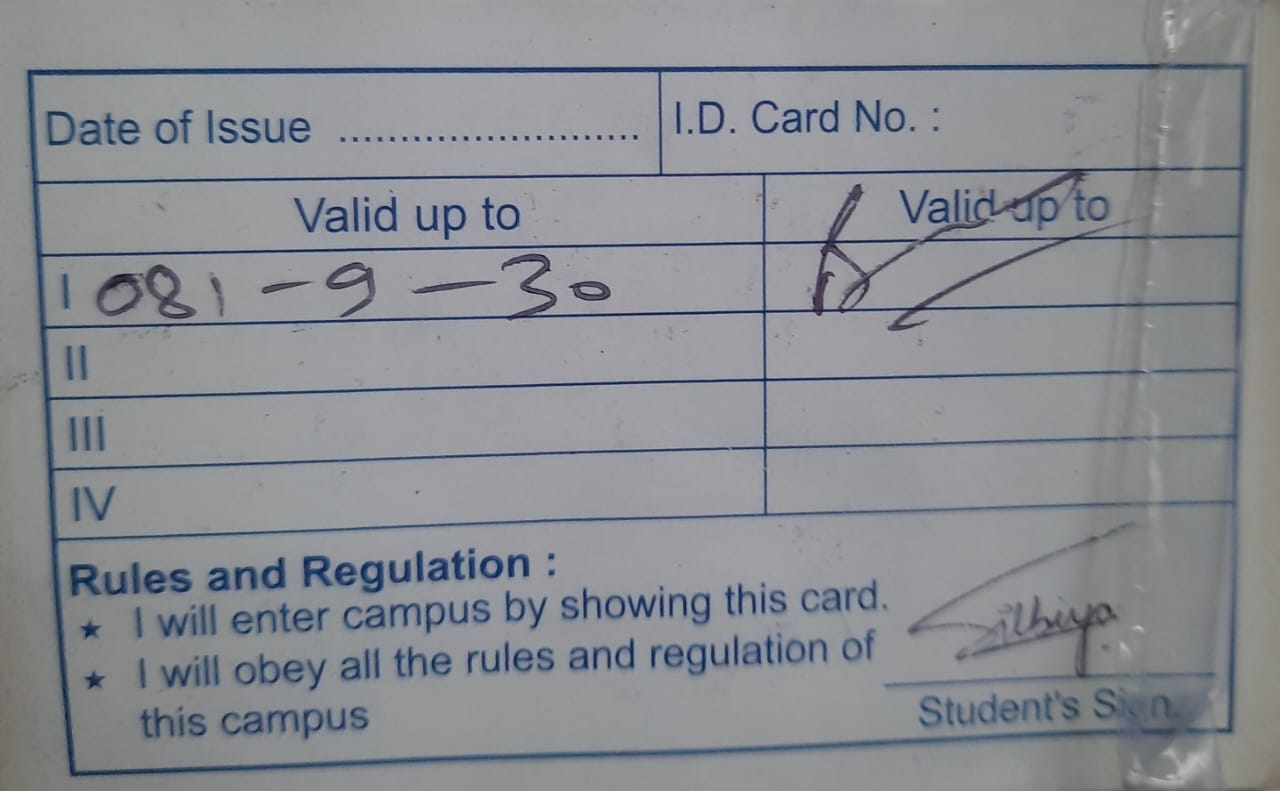 Date of Issue ........................ I.D. Card No. :
Valid up to Valid up to
I 081-9-30
II
III
IV
Rules and Regulation :
★ I will enter campus by showing this card.
★ I will obey all the rules and regulation of
this campus
Student's Sign.